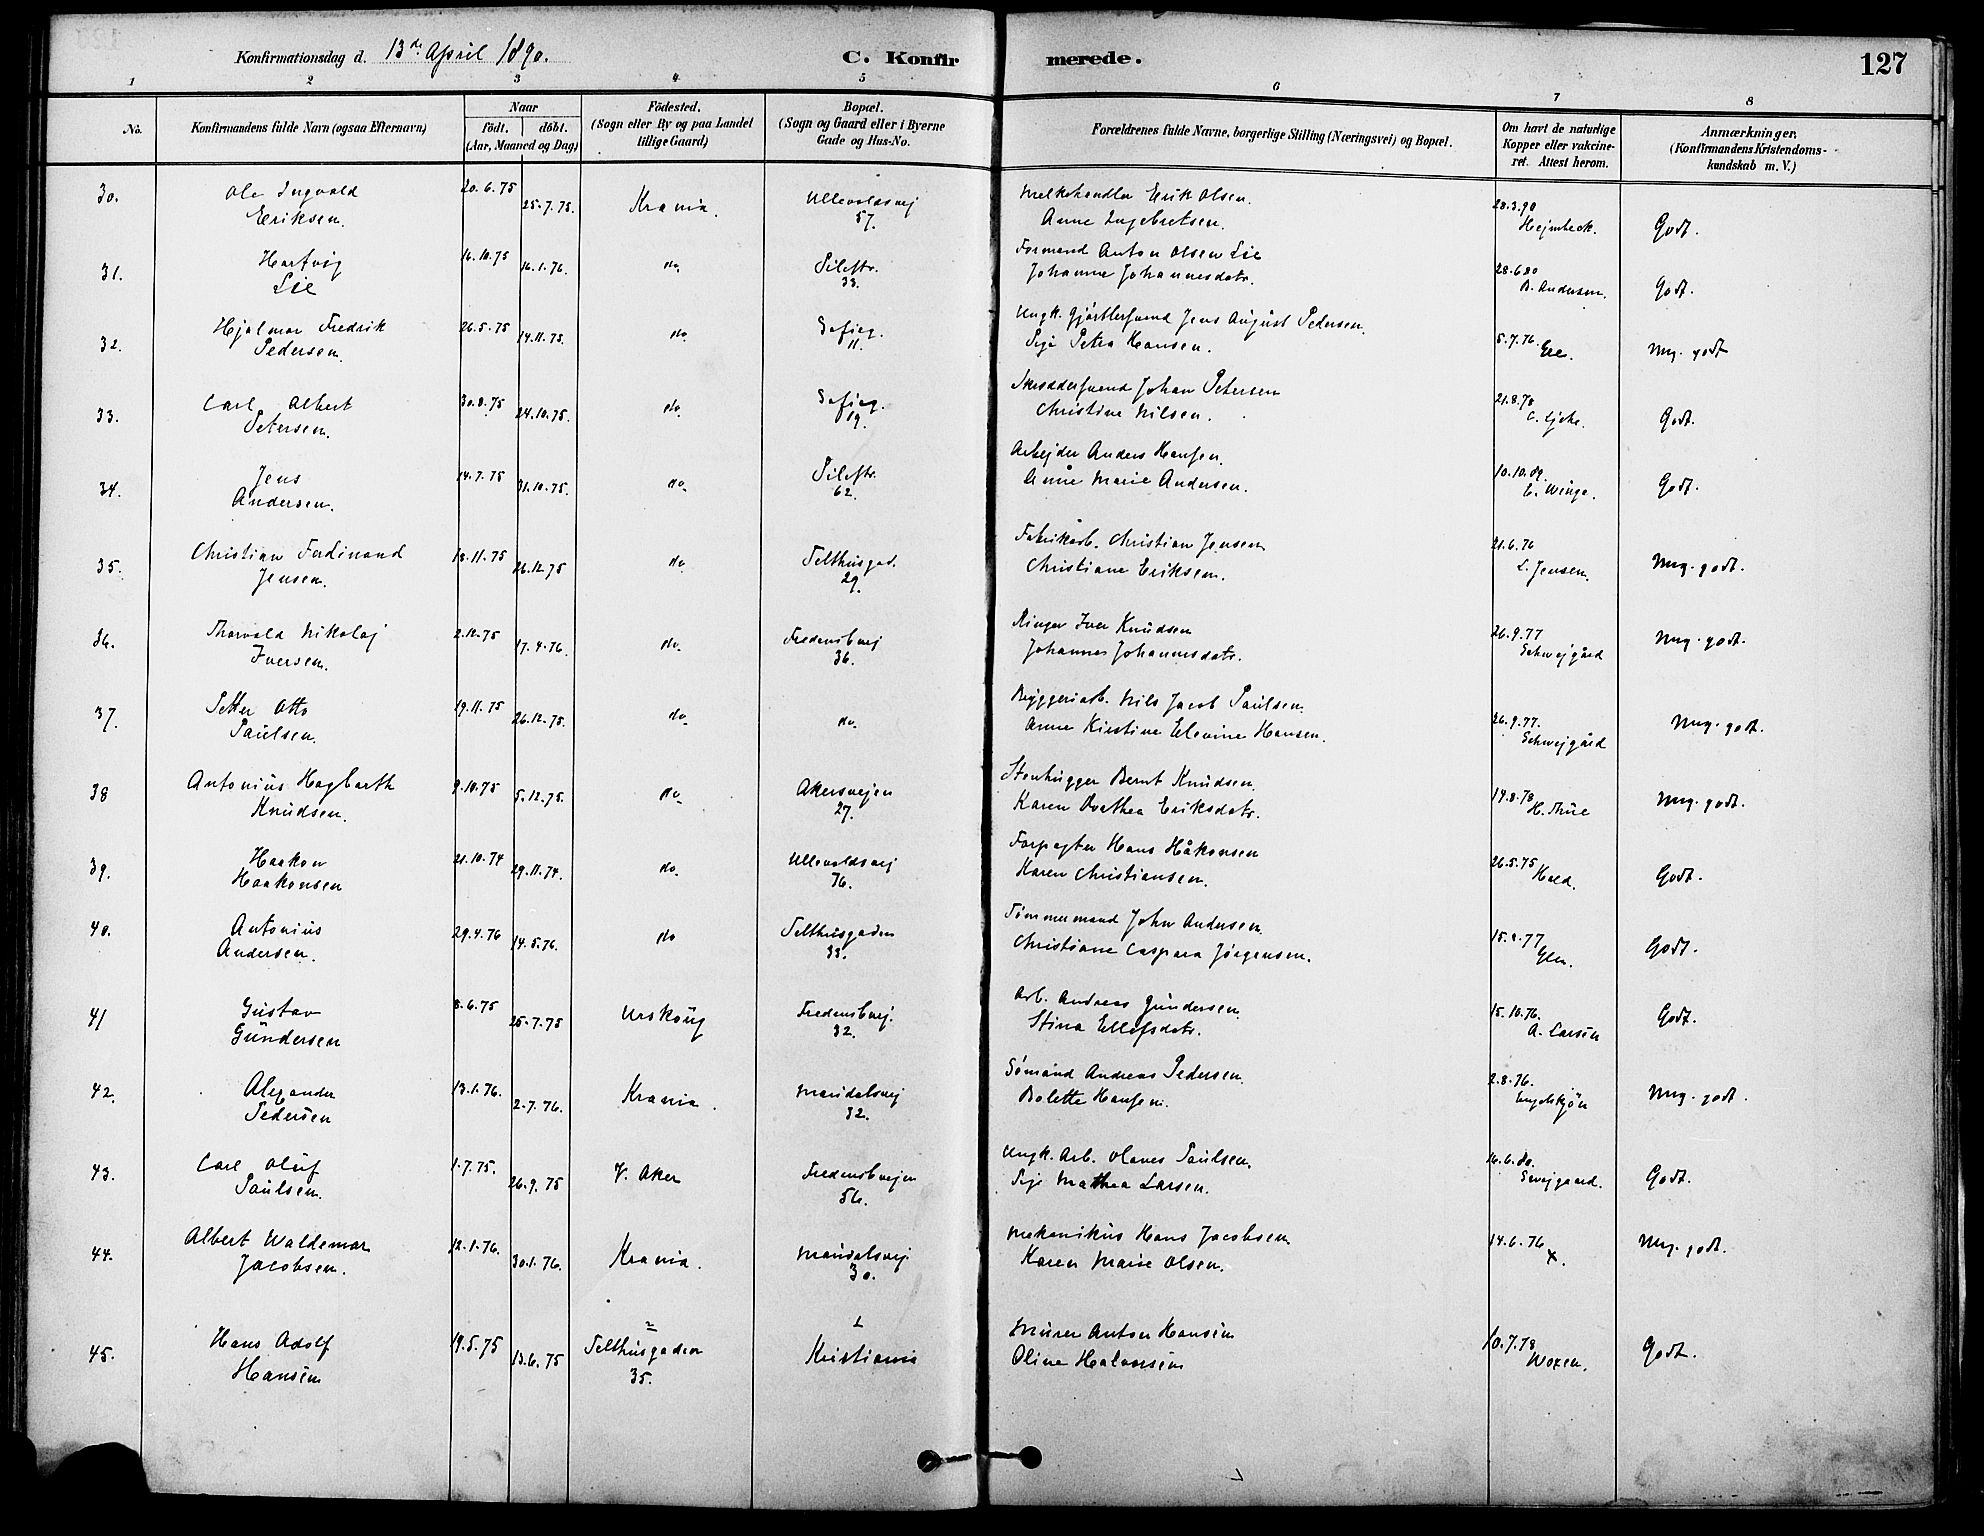 Konfirmationsdag d. 13de April 1890.
C. Konfirmerede.
127
1 2 3 4 5 6 7 8
No. Konfirmandens fulde Navn (ogsaa Efternavn) Naar födt, döbt. (Aar, Maaned og Dag) Födested. (Sogn eller By og paa Landet tillige Gaard) Bopæl. (Sogn og Gaard eller i Byerne Gade og Hus-No. Forældrenes fulde Navne, borgerlige Stilling (Næringsvei) og Bopæl. Om havt de naturlige Kopper eller vakcineret. Attest herom. Anmærkninger, (Konfirmandens Kristendomskundskab m. V.)
30. Ole Ingvald Eriksen. 20.6.75 25.7.75. Krania. Ullevoldsvej 57. Melkehandler Erik Olsen. Anne Ingebretsen. 28.3.90 Hejmbeck. Godt.
31. Hartvig Lie 16.10.75 16.1.76. do. Pilestr. 33. Formand Anton Olsen Lie Johanne Johannesdatr. 28.6.80 B. Andersen. Godt.
32. Hjalmar Fredrik Pedersen. 26.5.75 14.11.75. do. Sofieg. 11. Ungk. Gjörtlersvend Jens August Pedersen. Pige Petra Hansen. 5.7.76. Mg. godt
33. Carl Albert Petersen. 30.8.75 24.10.75. do. Sofieg. 19. Skreddersvend Johan Petersen Christine Nilsen. 21.8.78 Godt.
34. Jens Andersen. 14.7.75 31.10.75. do. Pilestr. 62. Arbejder Anders Hansen. Anne Marie Andersen. 10.10.89. E. Winge. Godt.
35. Christian Ferdinand Jensen. 18.11.75 26.12.75 do. Telthusgad. 29. Fabrikarb. Christian Jensen Christiane Eriksen. 21.6.76 L. Jensen. Mg. godt.
36. Thorvald Nikolaj Iversen. 2.12.75 17.4.76. do. Fredensbvej 36. Ringer Iver Knudsen Johanne Johannesdatr. 26.9.77 Schwejgård Mg. godt.
37. Petter Otto Paulsen. 19.11.75 26.12.75. do. do. Bryggeriarb. Nils Jacob Paulsen. Anne Kirstine Elevine Hansen. 26.9.77. Schwejgård Mg. godt.
38 Antonius Hagbarth Knudsen. 9.10.75 5.12.75. do. Akersvejen 27. Stenhugger Bernt Knudsen. Karen Dorthea Eriksdatr. 14.8.78 H. Thue Mg. godt.
39. Haakon Haakonsen 21.10.74 29.11.74. do. Ullevoldsvej 76. Forpagter Hans Håkonsen Karen Christiansen. 26.5.75 Hald. Godt.
40. Antonius Andersen. 29.4.76 14.5.76. do Telthusgaden 33. Tömmermand John Andersen. Christiane Caspara Jörgensen. Godt.
41 Gustav Gundersen 8.6.75 25.7.75 Urskoug Fredensbvej. 32. Arb. Andreas Gundersen. Stina Ellefsdatr. 15.10.76. A. Larsen Godt.
42. Alexander Pedersen 13.1.76. 2.7.76. Krania. Maridalsvej 32. Sömand Andreas Pedersen. Bolette Hansen. 2.8.76. Engelskjön Mg. godt.
43. Carl Oluf Paulsen. 1.7.75. 26.9.75 V. Aker Fredensbvejen 56. Ungk. Arb. Olaves Paulsen. Pige Mathea Larsen. 16.6.80. Svejgaard. Godt.
44. Albert Waldemar Jacobsen. 12.1.76. 30.1.76. Krania. Maridalsvej. 30. Mekanikus Hans Jacobsen Karen Marie Olsen. 14.6.76 x. Mg. godt.
45. Hans Adolf Hansen 19.5.75 13.6.75 2 Telthusgaden 35. 1 Kristiania Murer Anton Hansen Oline Halvorsen 10.7.78 Woxen. Godt.